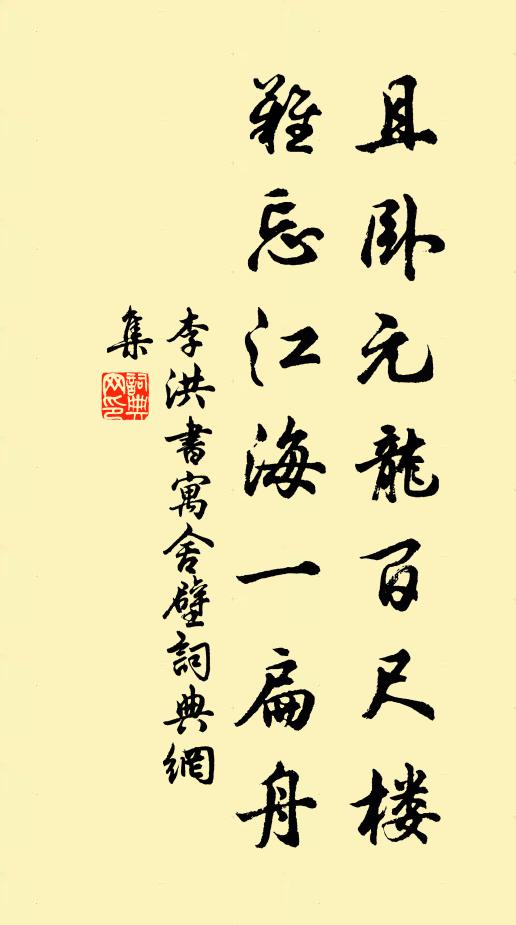 且卧元龍百尺楼
難忘江海一扁舟
李洪書寓舍壁詞典網
集
詞典
网印